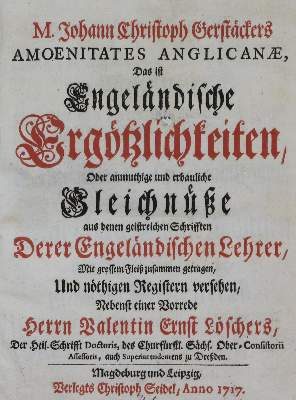 M. Johann Christoph Gerstäckers
AMOENITATES ANGLICANÆ,
Das ist
Engeländische
Ergötzlichkeiten,
Oder anmuthige und erbauliche
Gleichnüße
aus denen geistreichen Schrifften
Derer Engeländischen Lehrer,
Mit grossem Fleiß zusammen getragen,
Und nöthigen Registern versehen,
Nebenst einer Vorrede
Herrn Valentin Ernst Löschers,
Der Heil. Schrifft Doctoris, des Churfürstl. Sächs. Ober-Consistorii
Assessoris, auch Superintendentens zu Dreßden.
Magdeburg und Leipzig,
Verlegts Christoph Seidel, Anno 1717.